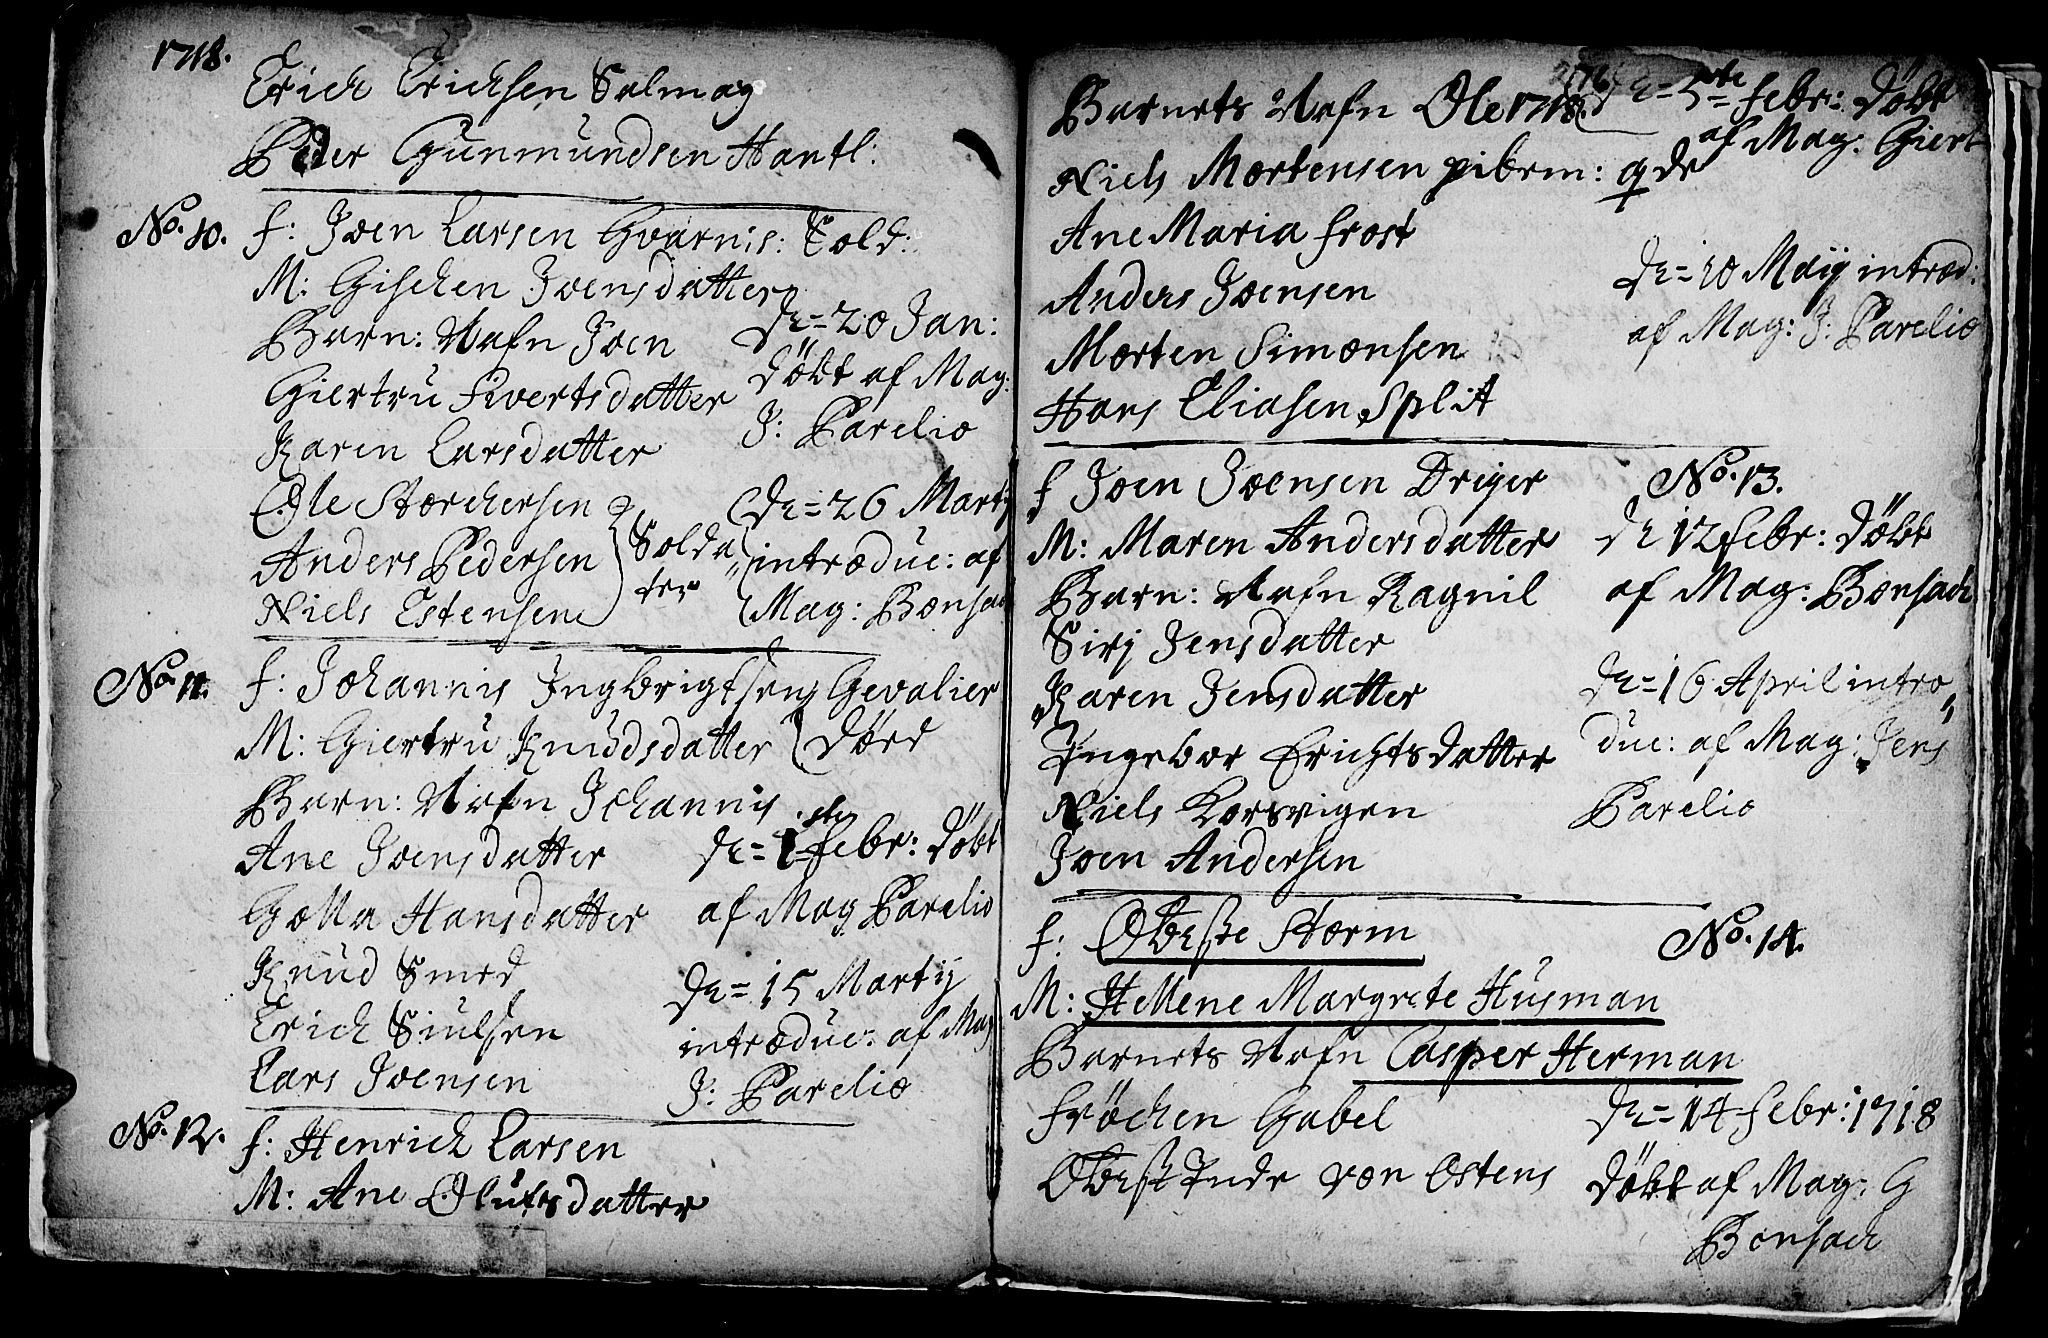 1718.
Erich Erichsen Salmag
Peder Gunmundsen Hantl:
No. 10. f: Joen Larsen Gvarnis: Sold:
M: Gischen Joensdatter
Barn: Nafn Joen
de= 20 Jan:
Giertru Sivertsdatter
döbt af Mag:
Karen Larsdatter
J: Parelio
Ole Storchersen
de= 26 Martij
Anders Pedersen
Solda„
introduc: af
Niels Estensen
ter
Mag: Bonsach
No. 11. f: Johannis Ingbrigtsen Gevalier
M: Giertru Knudsdatter
Dörd
Barn: Nafn Johannis
Ane Joensdatter
de= 1ste febr: döbt
Golla Hansdatter
af Mag Parelio
Knud Smed
de= 15 Martij
Erich Siulsen
introduc: af Mag
Lars Joensen
J: Parelio
No. 12. f: Henrich Larsen
M: Ane Olufsdatter
Barnets Nafn Ole 1718. de= 5te febr: döbt
af Mag: Giert
Niels Mortensen piberm:
Ane Maria frost
Anders Joensen
de= 10 Maij introd:
Morten Simonsen
af Mag: J: Parelio
Hans Eliasen Split
f Joen Joensen Drejer
No. 13.
M: Maren Andersdatter
de 12 febr: döbt
Barn: Nafn Ragnil
af Mag: Bonsach
Sirj Jensdatter
Karen Jensdatter
de= 16 April intro„
Ingebor Erichtsdatter
duc: af Mag: Jens
Niels Korsvigen
Parelio
Joen Andersen
f: Oberste Storm
No. 14.
M: Hellene Margrete Husman
Barnets Nafn Casper Herman
fröchen Gabel
de= 14 febr: 1718
Oberstinde von Ostens
döbt af Mag: G
Bonsach